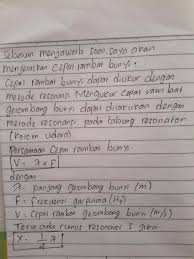 Sebelum menjawab soal, saya akan
menjelaskan Cepat rambat bunyi.
Cepat rambat bunyi dapat diukur dengan
metode resonansi. Mengukur cepat rambat
gelombang bunyi dapat dilakukan dengan
metode resonansi pada tabung resonator
(kolom udara)
Persamaan Cepat rambat bunyi
V = λ x F
dengan
λ = panjang gelombang bunyi (m)
F = Frekuensi garputala (Hz)
V = Cepat rambat gelombang bunyi (m/s)
rumus resonansi I
X = 1/4 λ